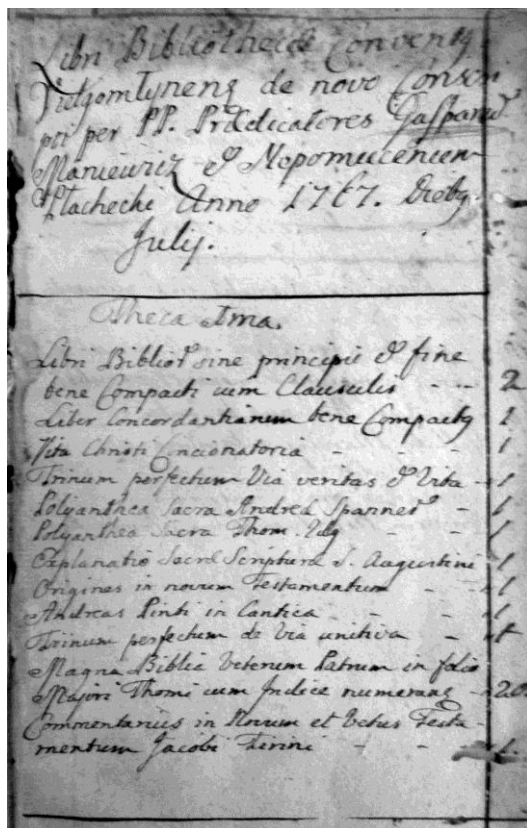 Libri Bibliothecæ Conventg
de novo Conscri
pti per PP. Prædicatores Gasparū
Maniewicz & Nepomucenum
Anno 1767. Diebg
Julij.
Theca Ima.
Libri Biblior̃ sine principio & fine
bene Compacti cum Clausulis - - 2
Liber Concordantianum bene Compactg 1
Vita Christi Concionatoria - - - 1
Trinum perfectum Via veritas & Vita - 1
Polyanthea Sacra Andreæ Spanner - 1
Polyanthea Sacra Thom. - - 1
Explanatio Sacræ Scripturæ S. Augustini 1
Origines in novum Testamentum - - 1
Andreas Pinti in Cantica - - - 1
Trinum perfectum de Via unitiva - 1
Magna Biblia Veterum Patrum in folio
Majori Thomi cum Indice numerang - 20
Commentarius in Novum et Vetus Testa-
mentum Jacobi Tirini - - - 1.